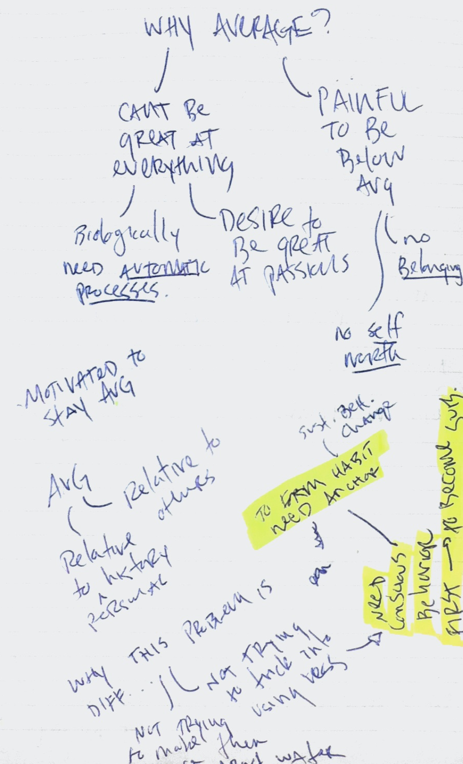 WHY AVERAGE?
CANT BE
GREAT AT
EVERYTHING
PAINFUL
TO BE
BELOW
AVG
Biologically
NEED AUTOMATIC
PROCESSES.
DESIRE to
BE GREAT
AT PASSIONS
no
Belonging
no self
worth
MOTIVATED to
STAY AVG
AVG
Relative to
others
Relative
to history
PERSONAL
sust. Beh.
change
TO FORM HABIT
NEED ANCHOR
NEED
CONSCIOUS
BEHAVIOR
FIRST → TO BECOME
WHY THIS PROBLEM IS
DIFF....
NOT TRYING
to trick into
using less
NOT TRYING
to make them
water